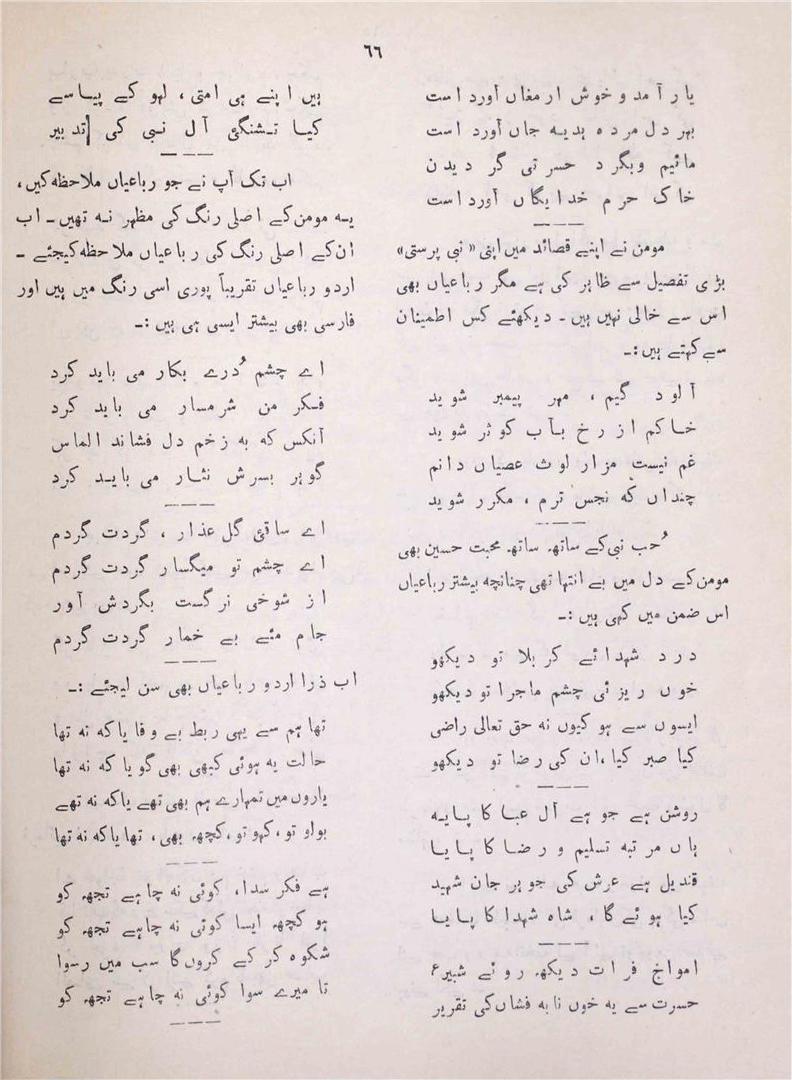 ٦٦
یار آمد و خوش ارمغاں آورد است
بہر دل مردہ ہدیہ جاں آورد است
مائیم وبگرد حسرتی گر دیدن
خاک حرم خدایگاں آورد است
مومن نے اپنے قصائد میں اپنی «نبی پرستی»
بڑی تفصیل سے ظاہر کی ہے مگر رباعیاں بھی
اس سے خالی نہیں ہیں۔ دیکھئے کس اطمینان
سے کہتے ہیں:۔
آلود گیم ، مہر پیمبر شوید
خاکم از رخ بآب کوثر شوید
غم نیست مزار لوث عصیاں دانم
چنداں کہ نجس ترم ، مکرر شوید
حُب نبی کے ساتھ ساتھ محبت حسین بھی
مومن کے دل میں بے انتہا تھی چنانچہ بیشتر رباعیاں
اس ضمن میں کہی ہیں:۔
درد شہدائے کربلا تو دیکھو
خوں ریزئی چشم ماجرا تو دیکھو
ایسوں سے ہو کیوں نہ حق تعالی راضی
کیا صبر کیا ، ان کی رضا تو دیکھو
روشن ہے جو ہے آل عبا کا پایہ
ہاں مرتبہ تسلیم و رضا کا پایا
قندیل ہے عرش کی جو ہر جان شہید
کیا ہوئے گا ، شاہ شہدا کا پایا
امواج فرات دیکھ روئے شبیرؑ
حسرت سے یہ خوں نابہ فشاں کی تقریر
ہیں اپنے ہی امتی ، لہو کے پیاسے
کیا تشنگئ آل نبی کی تدبیر
اب تک آپ نے جو رباعیاں ملاحظہ کیں ،
یہ مومن کے اصلی رنگ کی مظہر نہ تھیں۔ اب
ان کے اصلی رنگ کی رباعیاں ملاحظہ کیجئے ۔
اردو رباعیاں تقریباً پوری اسی رنگ میں ہیں اور
فارسی بھی بیشتر ایسی ہی ہیں:۔
اے چشم دُرے بکار می باید کرد
فکر من شرمسار می باید کرد
آنکس کہ بہ زخم دل فشاند الماس
گوہر بسرش نثار می باید کرد
اے ساقئ گل عذار ، گردت گردم
اے چشم تو میگسار گردت گردم
از شوخی نرگست بگردش آور
جام مئے بے خمار گردت گردم
اب ذرا اردو رباعیاں بھی سن لیجئے :۔
تھا ہم سے یہی ربط بے وفا یا کہ نہ تھا
حالت یہ ہوئی کبھی بھی گویا کہ نہ تھا
یاروں میں تمہارے ہم بھی تھے یا کہ نہ تھے
بولو تو ، کہو تو ، کچھ بھی ، تھا یا کہ نہ تھا
ہے فکر سدا ، کوئی نہ چاہے تجھ کو
ہو کچھ ایسا کوئی نہ چاہے تجھ کو
شکوہ کر کے کروں گا سب میں رسوا
تا میرے سوا کوئی نہ چاہے تجھ کو